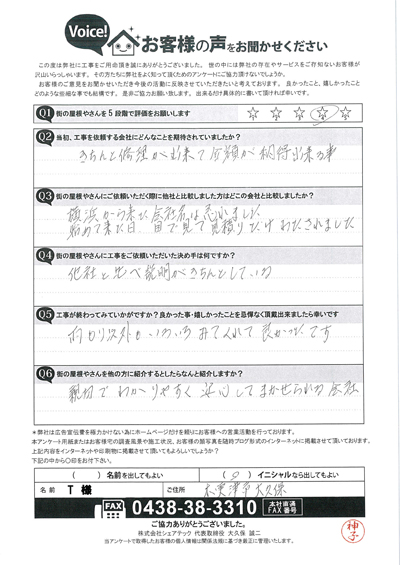 Voice! お客様の声をお聞かせください
この度は弊社に工事をご用命頂き誠にありがとうございました。世の中には弊社の存在やサービスをご存知ないお客様が
沢山いらっしゃいます。その方たちに弊社をよく知って頂くためのアンケートにご協力頂けないでしょうか。
お客様のご意見をお聞かせいただき今後の活動に反映させていただきたいと考えております。良かったこと、嬉しかったこと
どのような些細な事でも結構です。是非ご協力お願い致します。出来るだけ具体的に書いて頂ければ幸いです。
Q1 街の屋根やさんを5段階で評価をお願いします ☆ ☆ ☆ ☆ ☆
Q2 当初、工事を依頼する会社にどんなことを期待されていましたか?
きちんと修理が出来て金額が納得出来る事
Q3 街の屋根やさんにご依頼いただく際に他社と比較しました方はどこの会社と比較しましたか?
横浜から来た会社名は忘れました
始めて来た日 目で見て見積りだけわたされました
Q4 街の屋根やさんに工事をご依頼いただいた決め手は何ですか?
他社と比べ説明がきちんとしている
Q5 工事が終わってみていかがですか?良かった事・嬉しかったことを忌憚なく頂戴出来ましたら幸いです
雨もり以外もいろいろみてくれて良かったです
Q6 街の屋根やさんを他の方に紹介するとしたらなんと紹介しますか?
親切でわかりやすく安心してまかせられる会社
*弊社は広告宣伝費を極力かけない為にホームページだけを頼りにお客様への営業活動を行っております。
本アンケート用紙またはお客様宅の調査風景や施工状況、お客様の顔写真を随時ブログ形式のインターネットに掲載させて頂いております。
上記内容をインターネットや印刷物に掲載させて頂いてもよろしいでしょうか?
下記の中から〇印をお付下さい。
( ) 名前を出してもよい (○) イニシャルなら出してもよい
名前 T 様 ご住所 木更津市大久保
FAX 0438-38-3310 本社直通 FAX番号
ご協力ありがとうございました。
株式会社シェアテック 代表取締役 大久保 誠二
当アンケートで取得したお客様の個人情報は関係法規に基づき厳正に管理いたします。